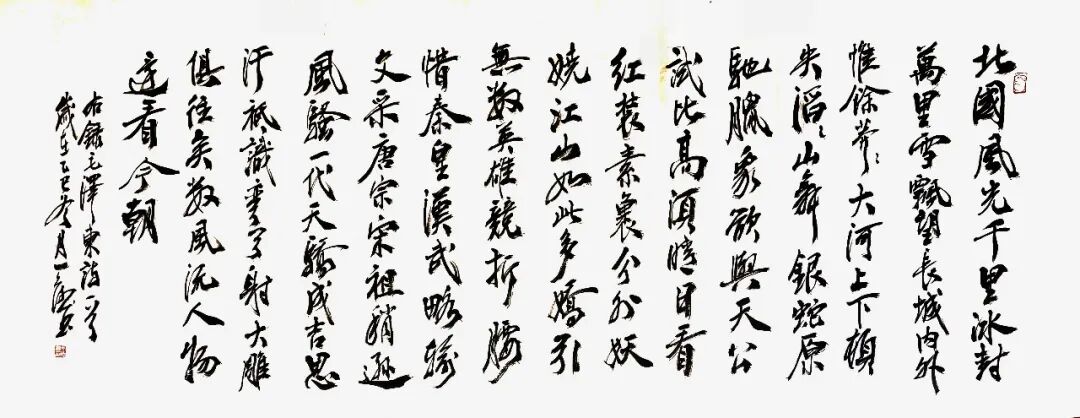 北國風光千里冰封
萬里雪飄望長城内外
惟餘莽〻大河上下頓
失滔〻山舞銀蛇原
馳臘象欲與天公
試比高須晴日看
红裝素裹分外妖
嬈江山如此多嬌引
無数英雄競折腰
惜秦皇漢武略輸
文采唐宗宋祖稍遜
風騷一代天驕成吉思
汗祗識彎弓射大雕
俱往矣数風流人物
還看今朝
右錄毛澤東詞一首
歲在乙巳冬月